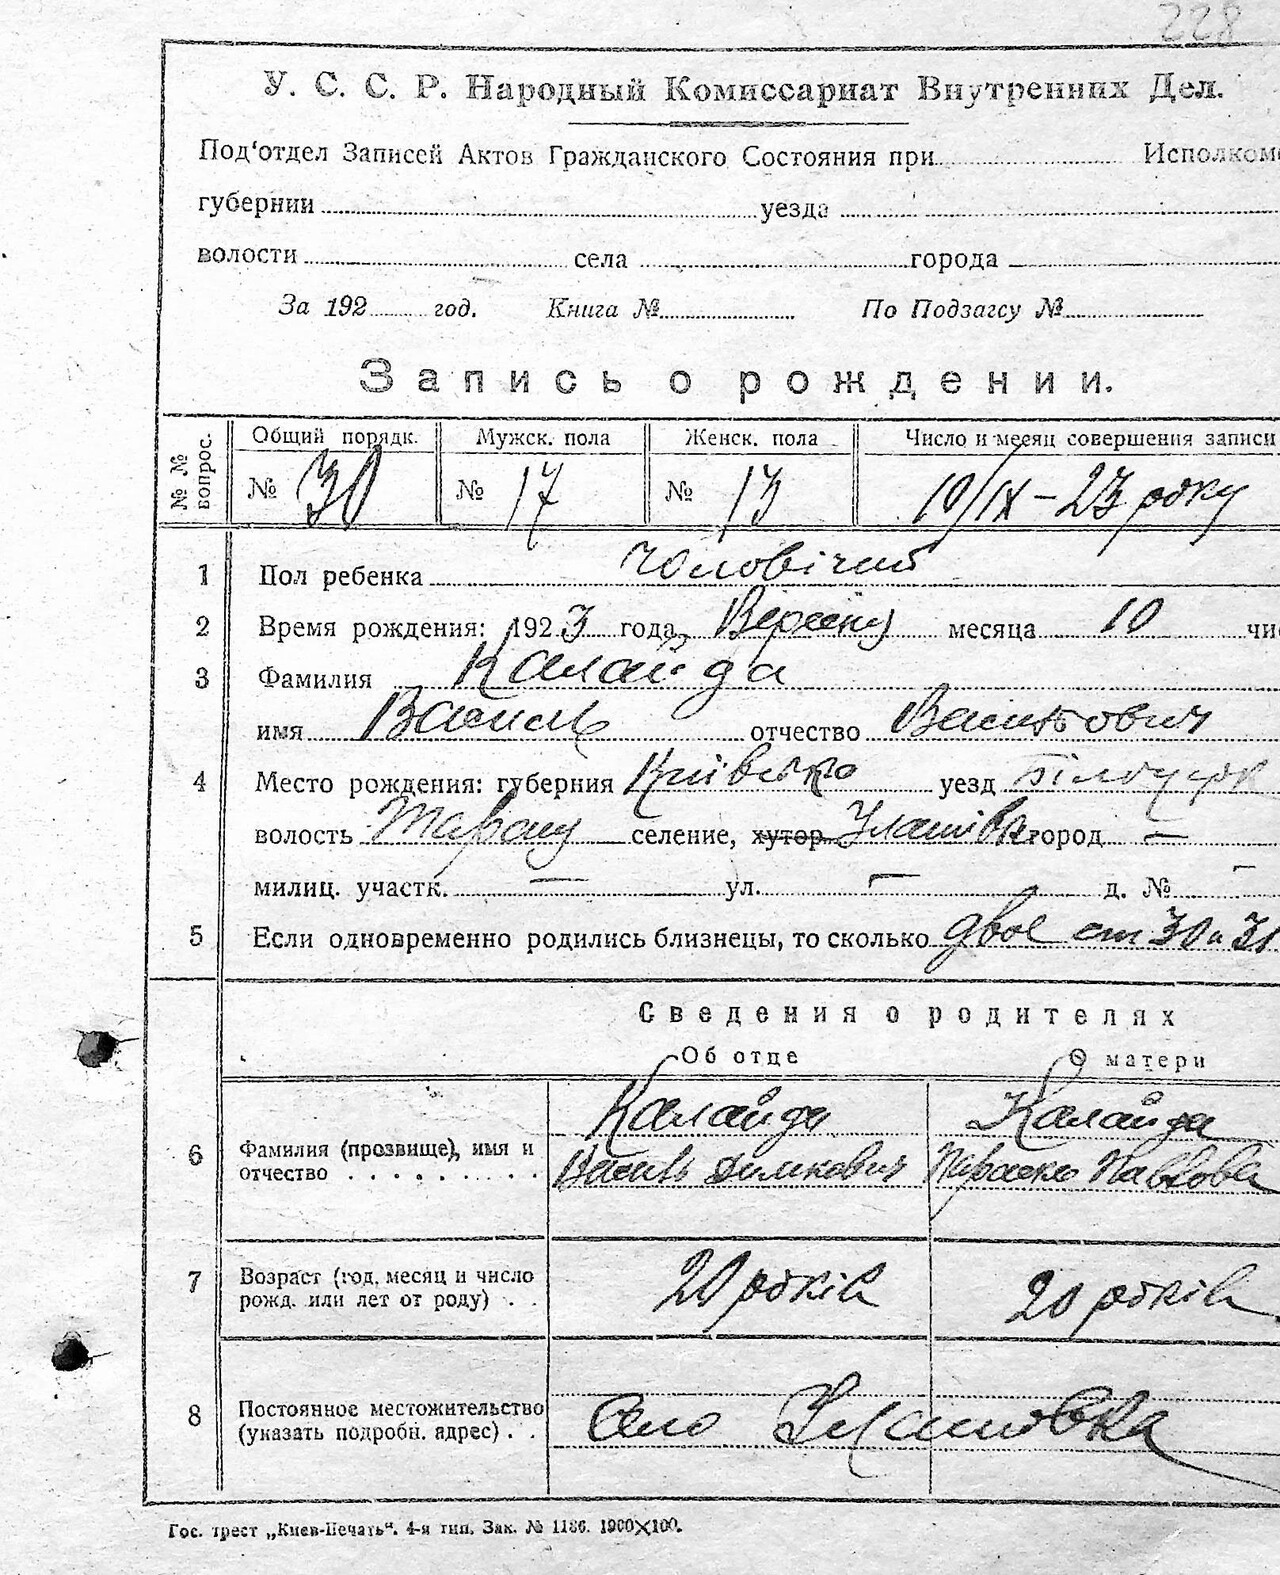 228
У. С. С. Р. Народный Комиссариат Внутренних Дел.
Под'отдел Записей Актов Гражданского Состояния при Исполкоме
губернии уезда
волости села города
За 192 год. Книга № По Подзагсу №
Запись о рождении.
№ № вопрос. Общий порядк. Мужск. пола Женск. пола Число и месяц совершения записи
№ 30 № 17 № 13 10/IX – 23 року
1 Пол ребенка Чоловічий
2 Время рождения: 1923 года, Вересня месяца 10 чис
3 Фамилия Калайда
имя Василь отчество Васильович
4 Место рождения: губерния Київсько уезд Білоцерк
волость селение, хутор Улашівка город —
милиц. участк. — ул. — д. № —
5 Если одновременно родились близнецы, то сколько двое ст 30 и 31
Сведения о родителях
Об отце О матери
6 Фамилия (прозвище), имя и отчество Калайда Калайда
Василь Параска Павлова
7 Возраст (год, месяц и число рожд. или лет от роду) 20 років 20 років
8 Постоянное местожительство (указать подробн. адрес) Село Улашовка
Гос. трест „Киев-Печать“. 4-я тип. Зак. № 1186. 1900×100.